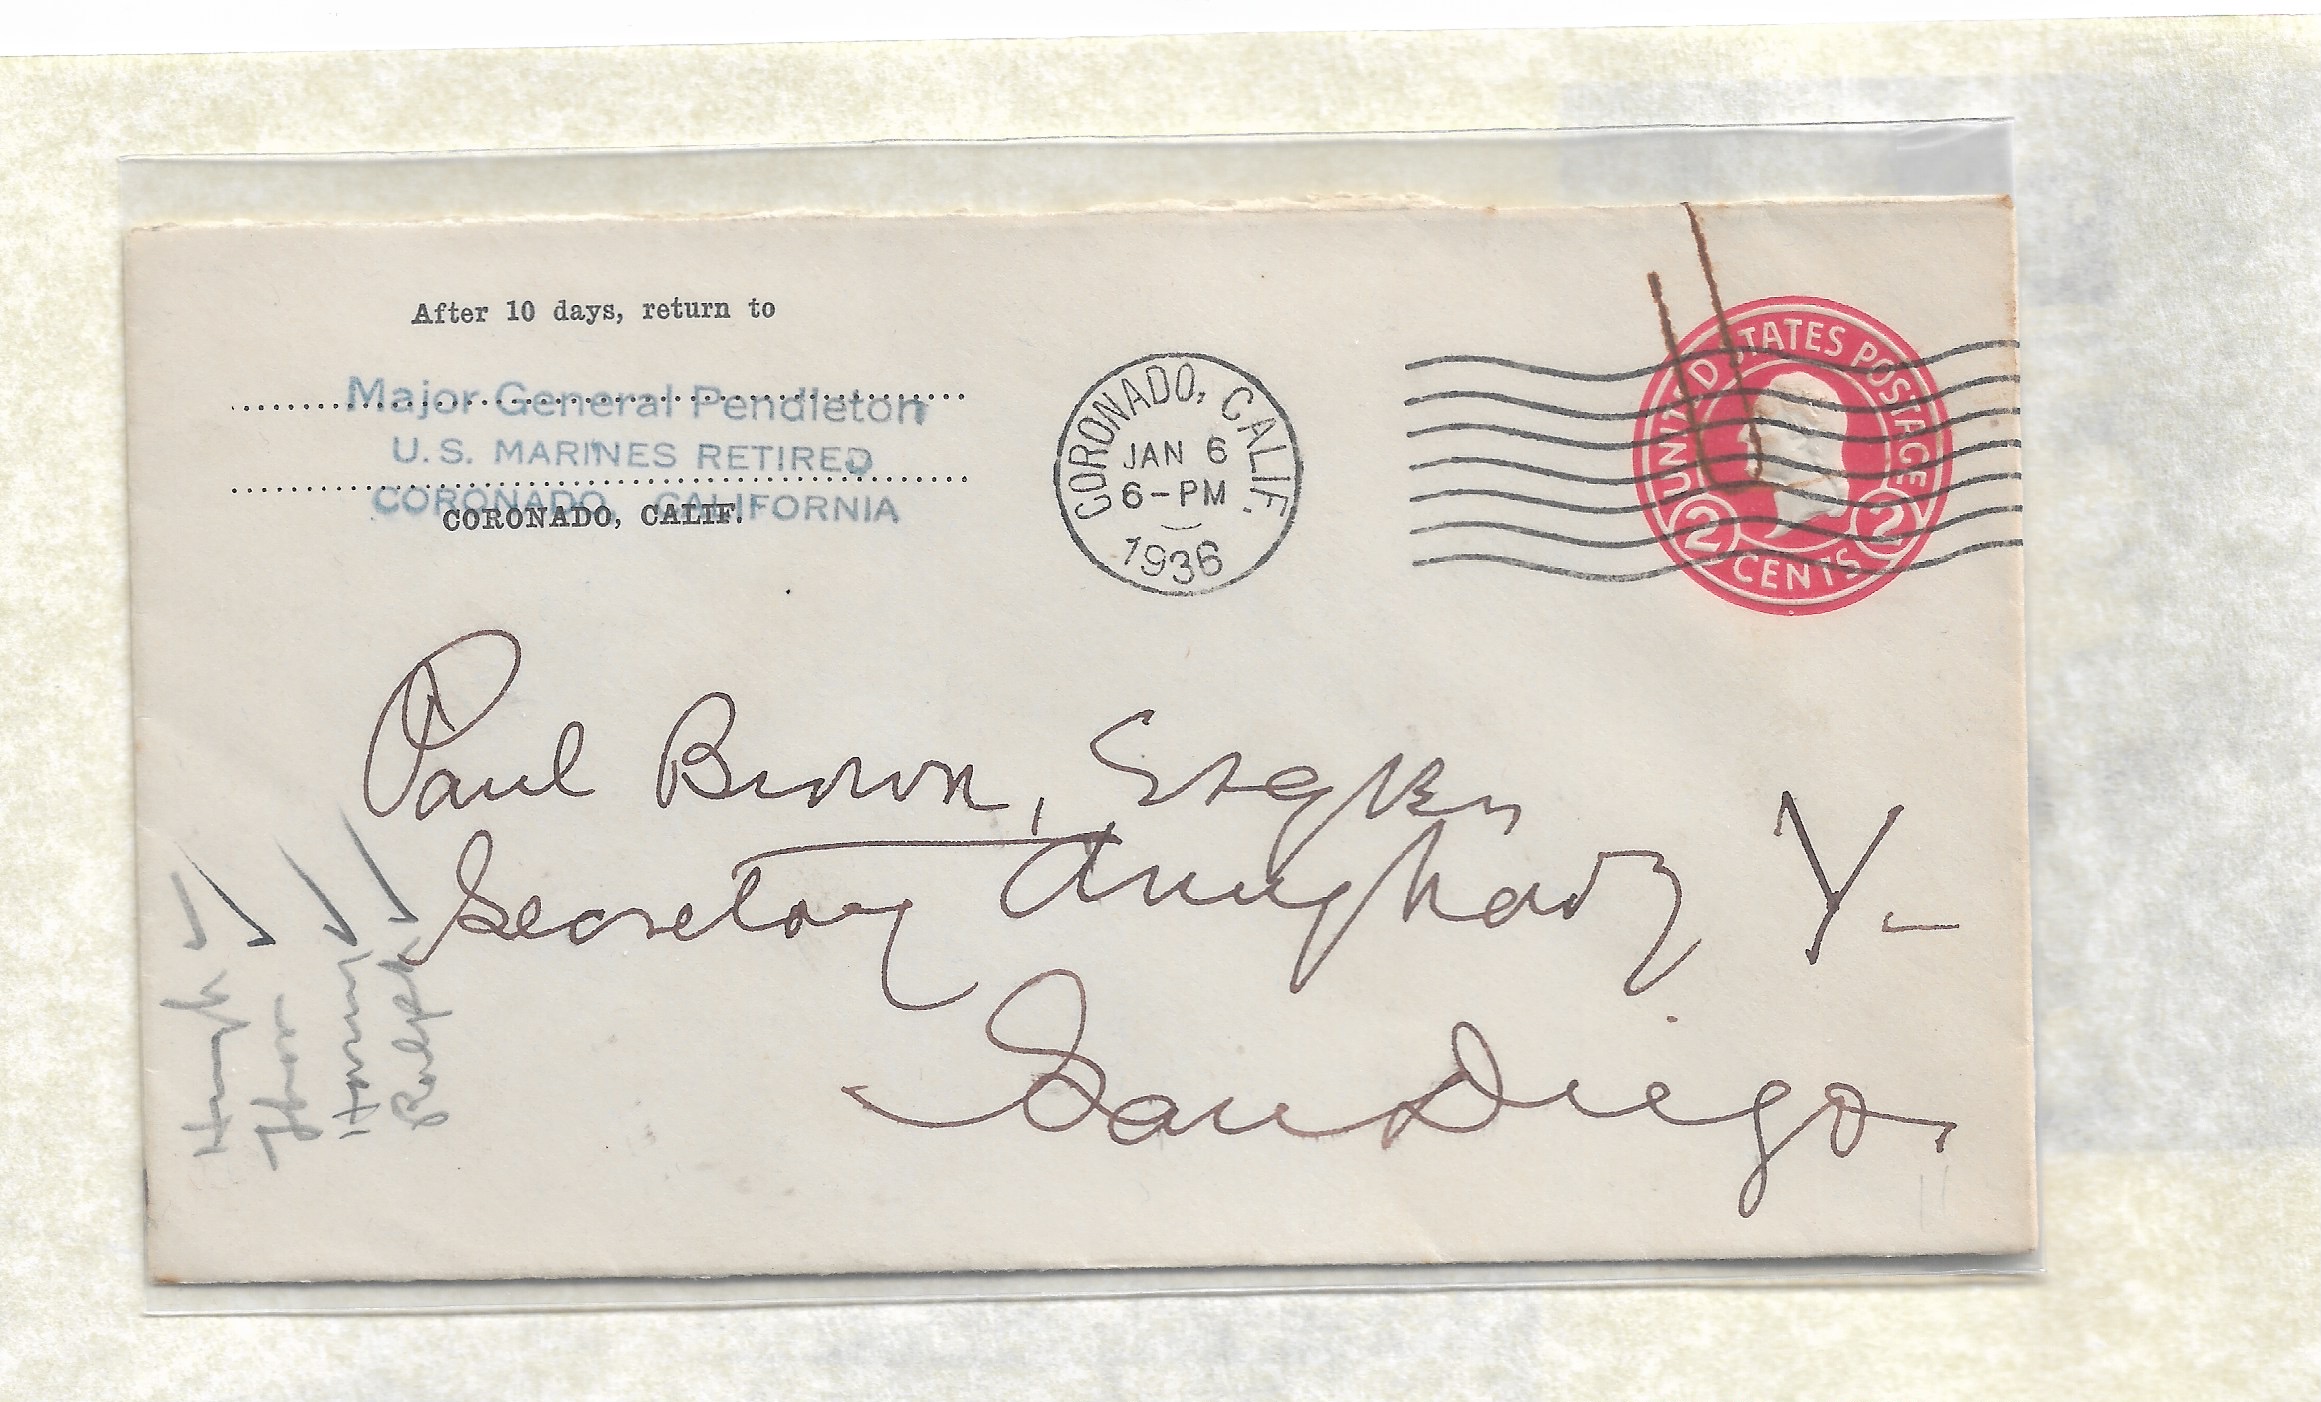 After 10 days, return to
Major General Pendleton
U.S. MARINES RETIRED
CORONADO, CALIFORNIA
CORONADO, CALIF.
CORONADO, CALIF.
JAN 6
6-PM
1936
UNITED STATES POSTAGE
2 CENTS 2
Paul Brown,
Secretary Army & Navy Y-
San Diego.
Ralph